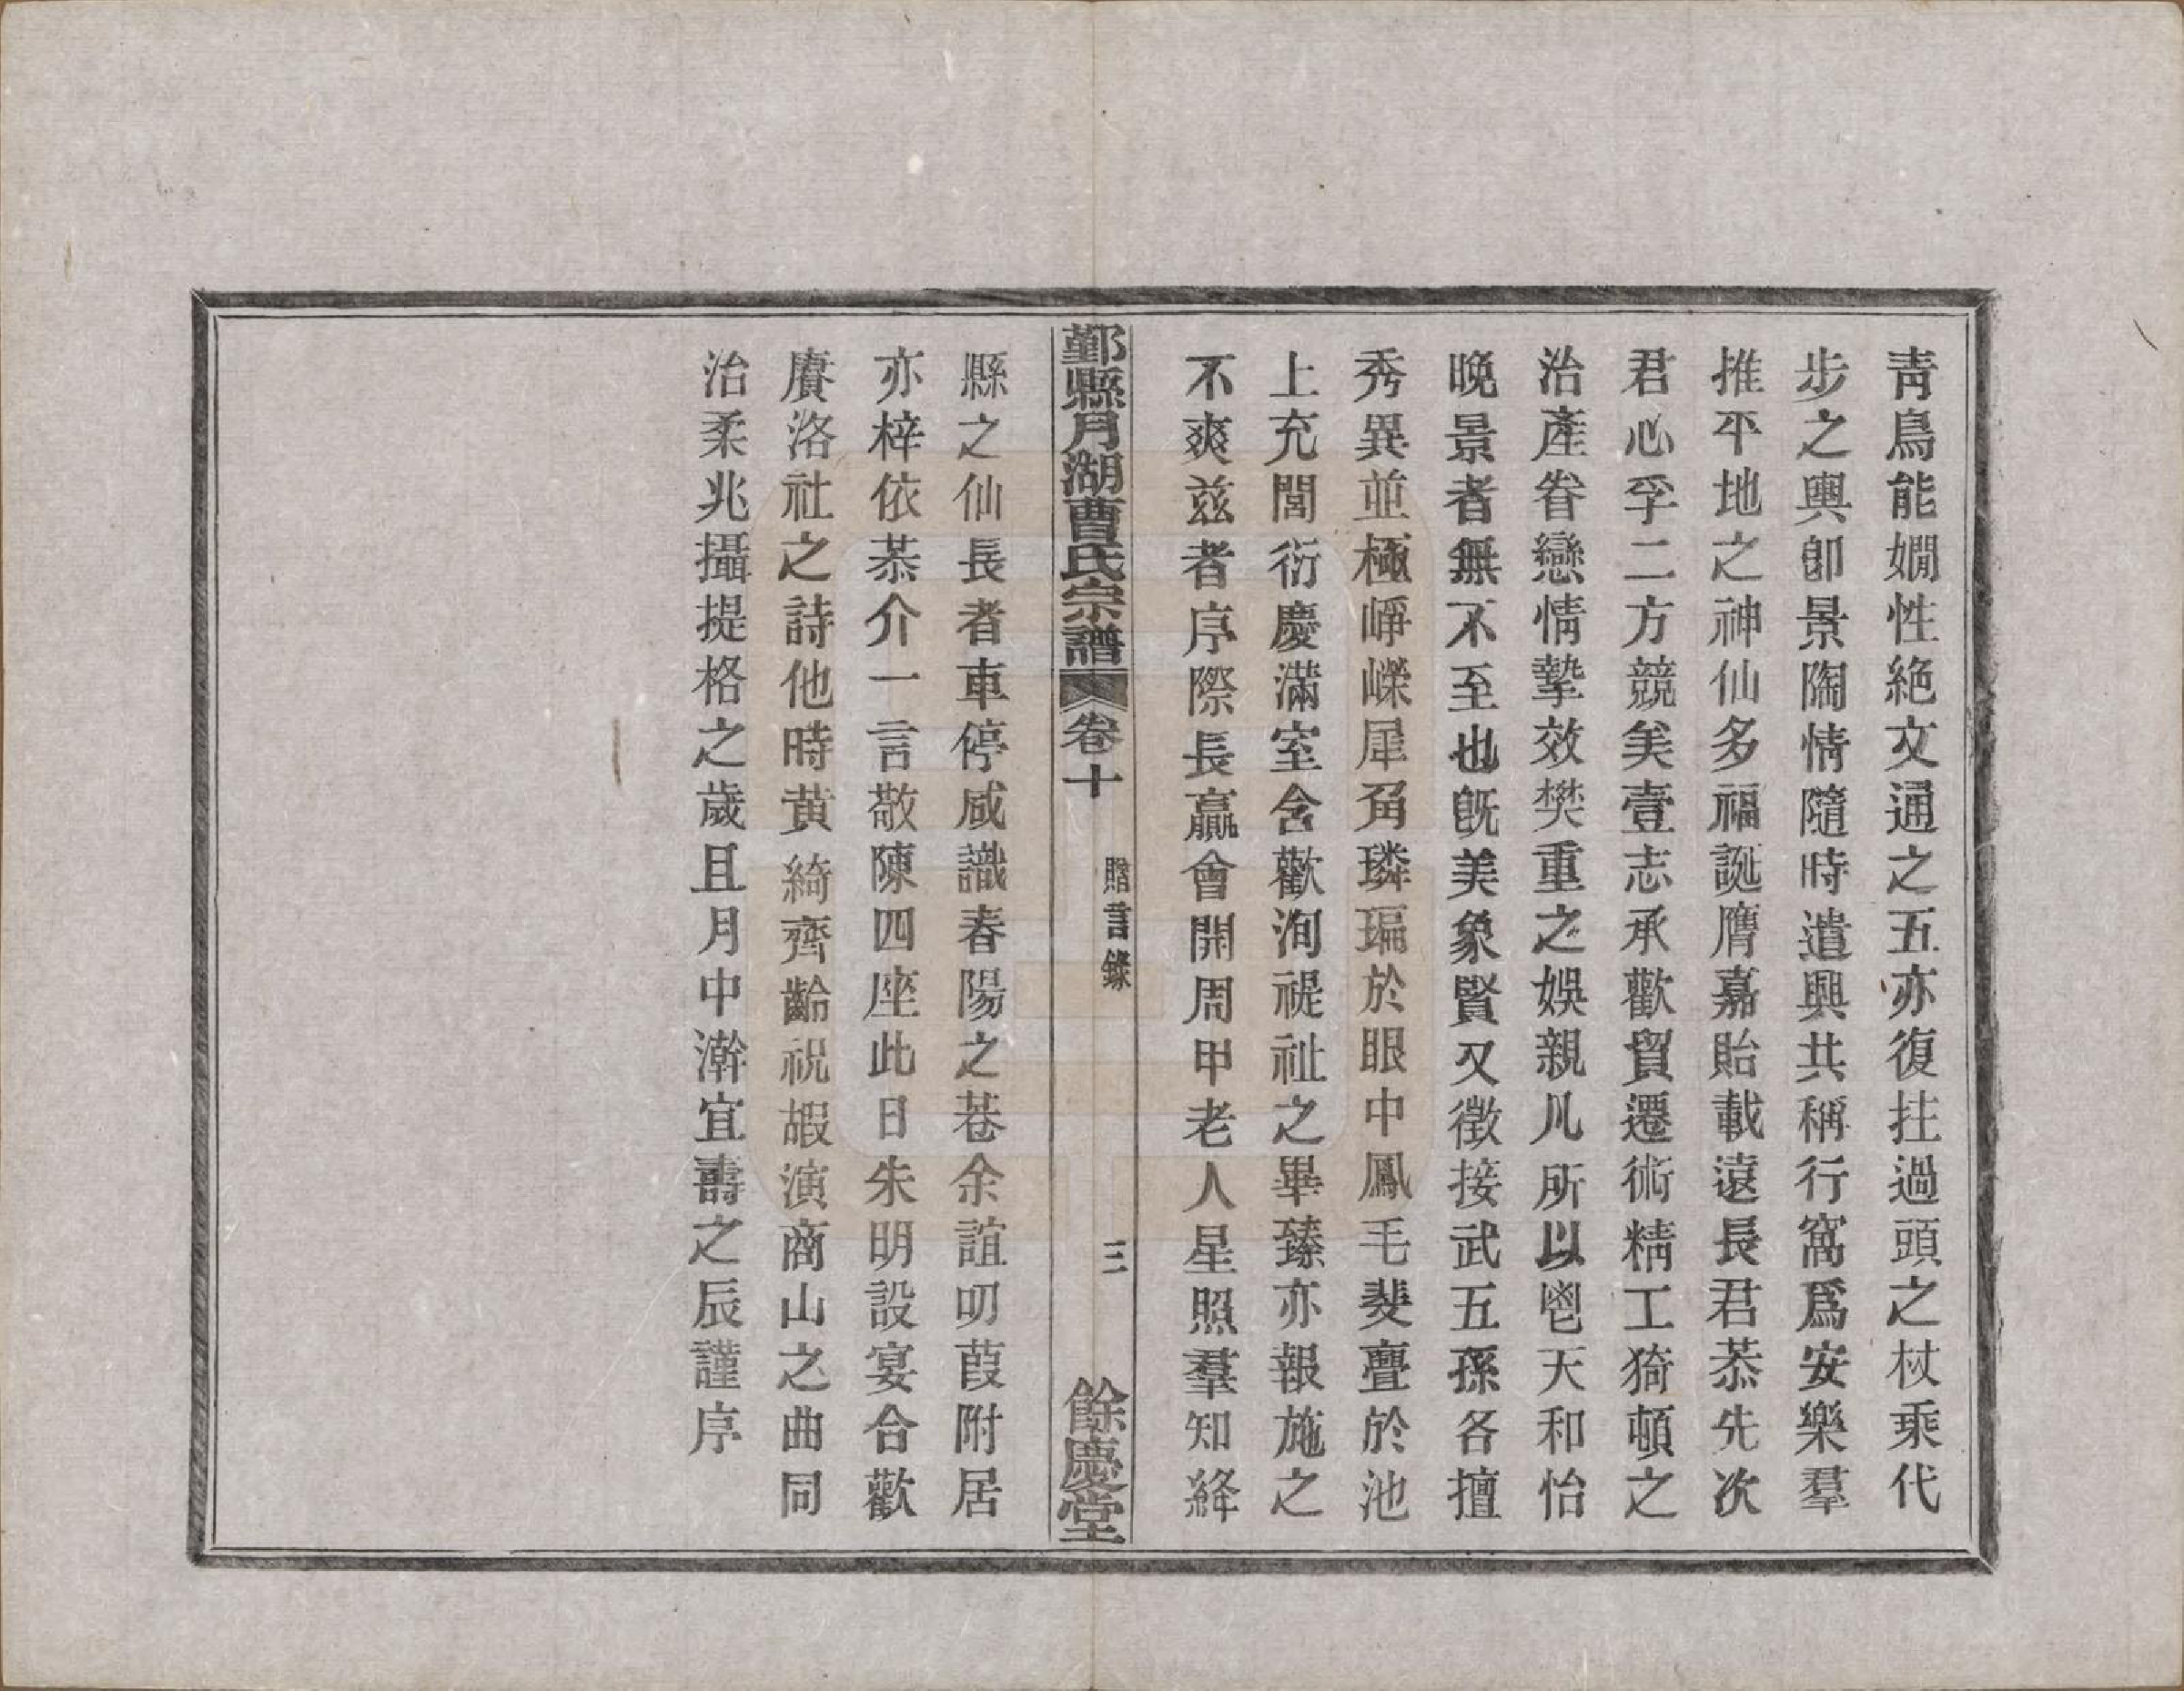 青鳥能嫺性絶文通之五亦復拄過頭之杖乘代
步之輿卽景陶情隨時遣興共稱行窩爲安樂羣
推平地之神仙多福誕膺嘉貽載遠長君菾先次
君心孚二方競矣壹志承歡貿遷術精工猗頓之
治產眷戀情摯效樊重之娛親凡所以鬯天和怡
晚景者無不至也旣美象賢又徵接武五孫各擅
秀異並極崢嶸犀角璘㻞於眼中鳳毛斐亹於池
上充閭衍慶滿室含歡洵禔祉之畢臻亦報施之
不爽茲者序際長贏會開周甲老人星照羣知絳
鄞縣月湖曹氏宗譜 卷十 贈言錄 三 餘慶堂
縣之仙長者車停咸識春陽之巷余誼叨葭附居
亦梓依菾介一言敬陳四座此日朱明設宴合歡
賡洛社之詩他時黃綺齊齡祝嘏演商山之曲同
治柔兆攝提格之歲且月中澣宜壽之辰謹序